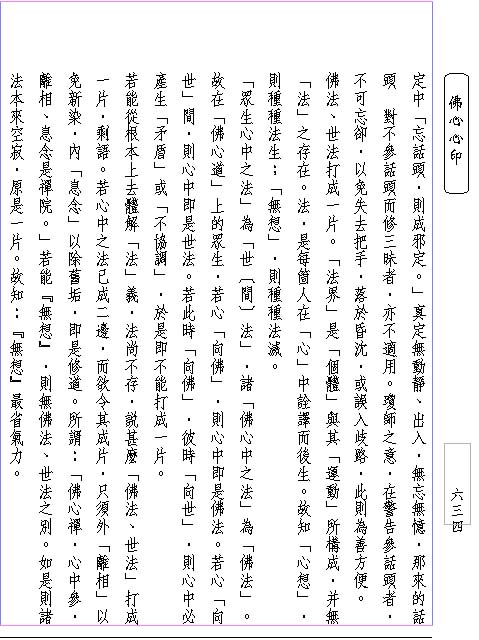 佛心心印
六三四
定中「忘話頭，則成邪定。」真定無動靜、出入，無忘無憶，那來的話
頭　對不參話頭而修三昧者，亦不適用。瓊師之意，在警告參話頭者，
不可忘卻，以免失去把手，落於昏沈，或誤入歧路，此則為善方便。
佛法、世法打成一片。「法界」是「個體」與其「運動」所構成，並無
「法」之存在。法，是每個人在「心」中詮譯而後生。故知「心想」，
則種種法生；「無想」，則種種法滅。
「眾生心中之法」為「世（間）法」，諸「佛心中之法」為「佛法」。
故在「佛心道」上的眾生，若心「向佛」，則心中即是佛法。若心「向
世」間，則心中即是世法。若此時「向佛」，彼時「向世」，則心中必
產生「矛盾」或「不協調」，於是即不能打成一片。
若能從根本上去體解「法」義，法尚不存，說甚麼「佛法、世法」打成
一片，剩語。若心中之法已成二邊，而欲令其成片，只須外「離相」以
免新染，內「息念」以除舊垢，即是修道。所謂：「佛心禪，心中參，
離相、息念是禪院。」若能『無想』，則無佛法、世法之別。如是則諸
法本來空寂，原是一片。故知：『無想』最省氣力。